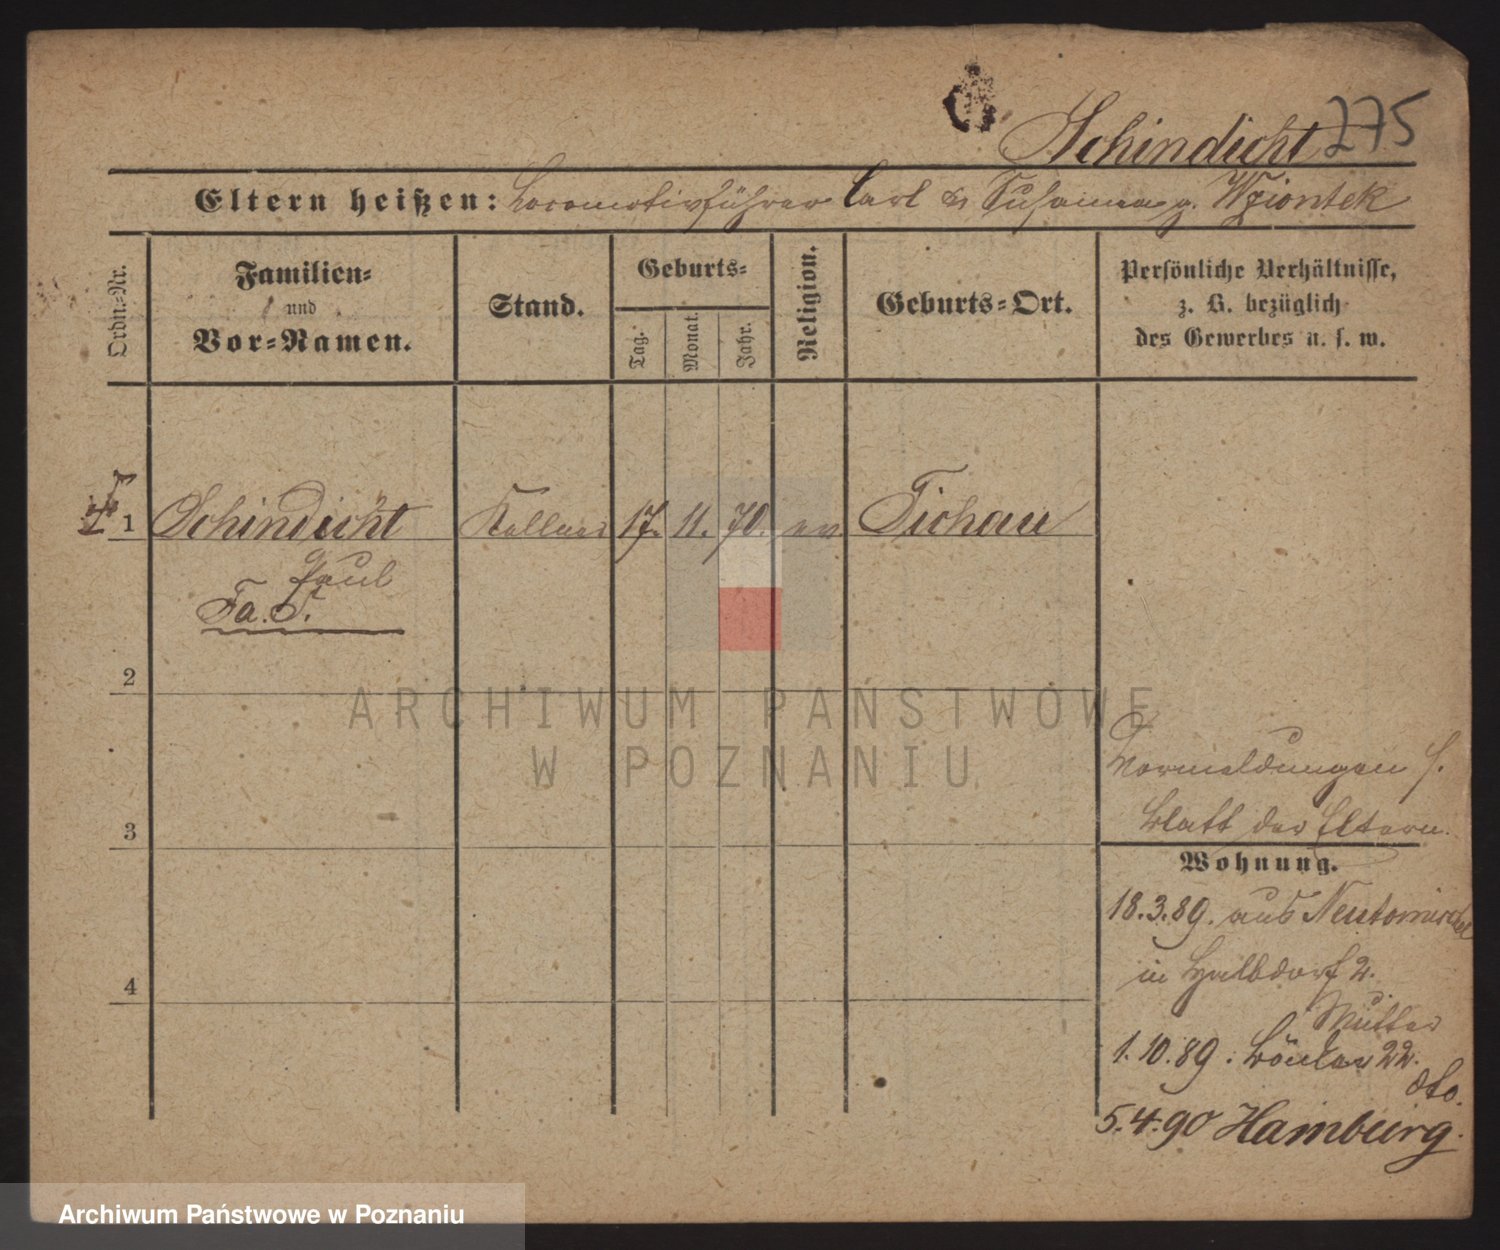 Schindicht 275
Eltern heißen: Locomotivführer Carl & Susanna g. Wziontek
Ordn.-Nr.
Familien-
und
Vor-Namen.
Stand.
Geburts-
Tag.
Monat.
Jahr.
Religion.
Geburts-Ort.
Persönliche Verhältnisse,
z. B. bezüglich
des Gewerbes u. s. w.
1 Schindicht Kellner 17. 11. 70. ev Tichau
Paul
Fa. S.
2
3
4
ARCHIWUM PAŃSTWOWE
W POZNANIU
Vormeldungen s.
Blatt der Eltern.
Wohnung.
18.3.89. aus Neutomischel
in Halbdorf 2.
Mutter
1.10.89. 22.
dto.
5.4.90 Hamburg.
Archiwum Państwowe w Poznaniu